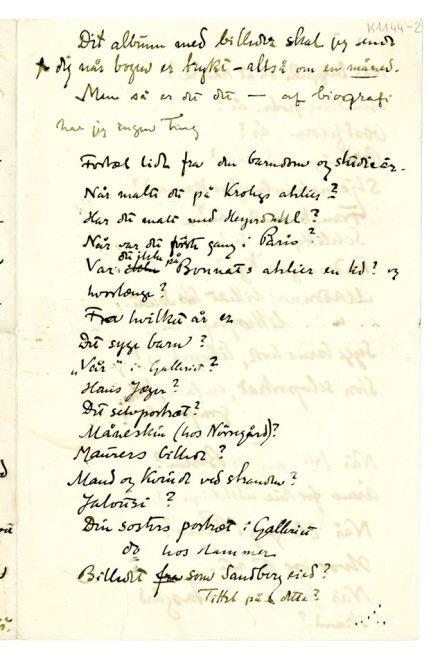 K1144-2
Dit album med billeder skal jeg sende
dig når bogen er trykt – altså om en måned.
Men så er det det – af biografi
har jeg ingen Ting
Fortæl lidt fra din barndom og studieår.
Når malte du på Krohgs atelier?
Har du malt med Heyerdahl?
Når var du første gang i Paris?
Var du ikke på Bonnats atelier en tid? og
hvorlænge?
Fra hvilket år er
Det syge barn?
"Vår" i Galleriet?
Hans Jæger?
Dit selvportræt?
Måneskin (hos Nörregård)?
Maurers billede?
Mand og Kvinde ved stranden?
Jalousi?
Din søsters portræt i Galleriet
do hos Hammer
Billedet fra som Sandberg eied?
Tittel på dette?